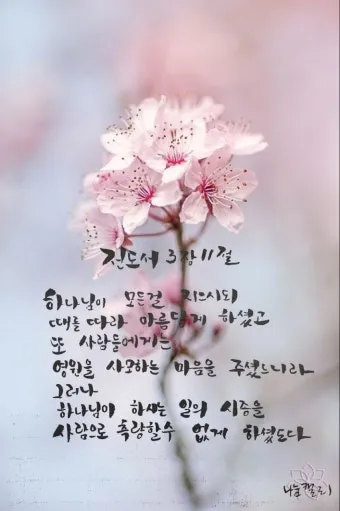 전도서 3장 11절
하나님이 모든걸 지으시되
때를 따라 아름답게 하셨고
또 사람들에게는
영원을 사모하는 마음을 주셨느니라
그러나
하나님이 하시는 일의 시종을
사람으로 측량할수 없게 하셨도다
나눔캘리